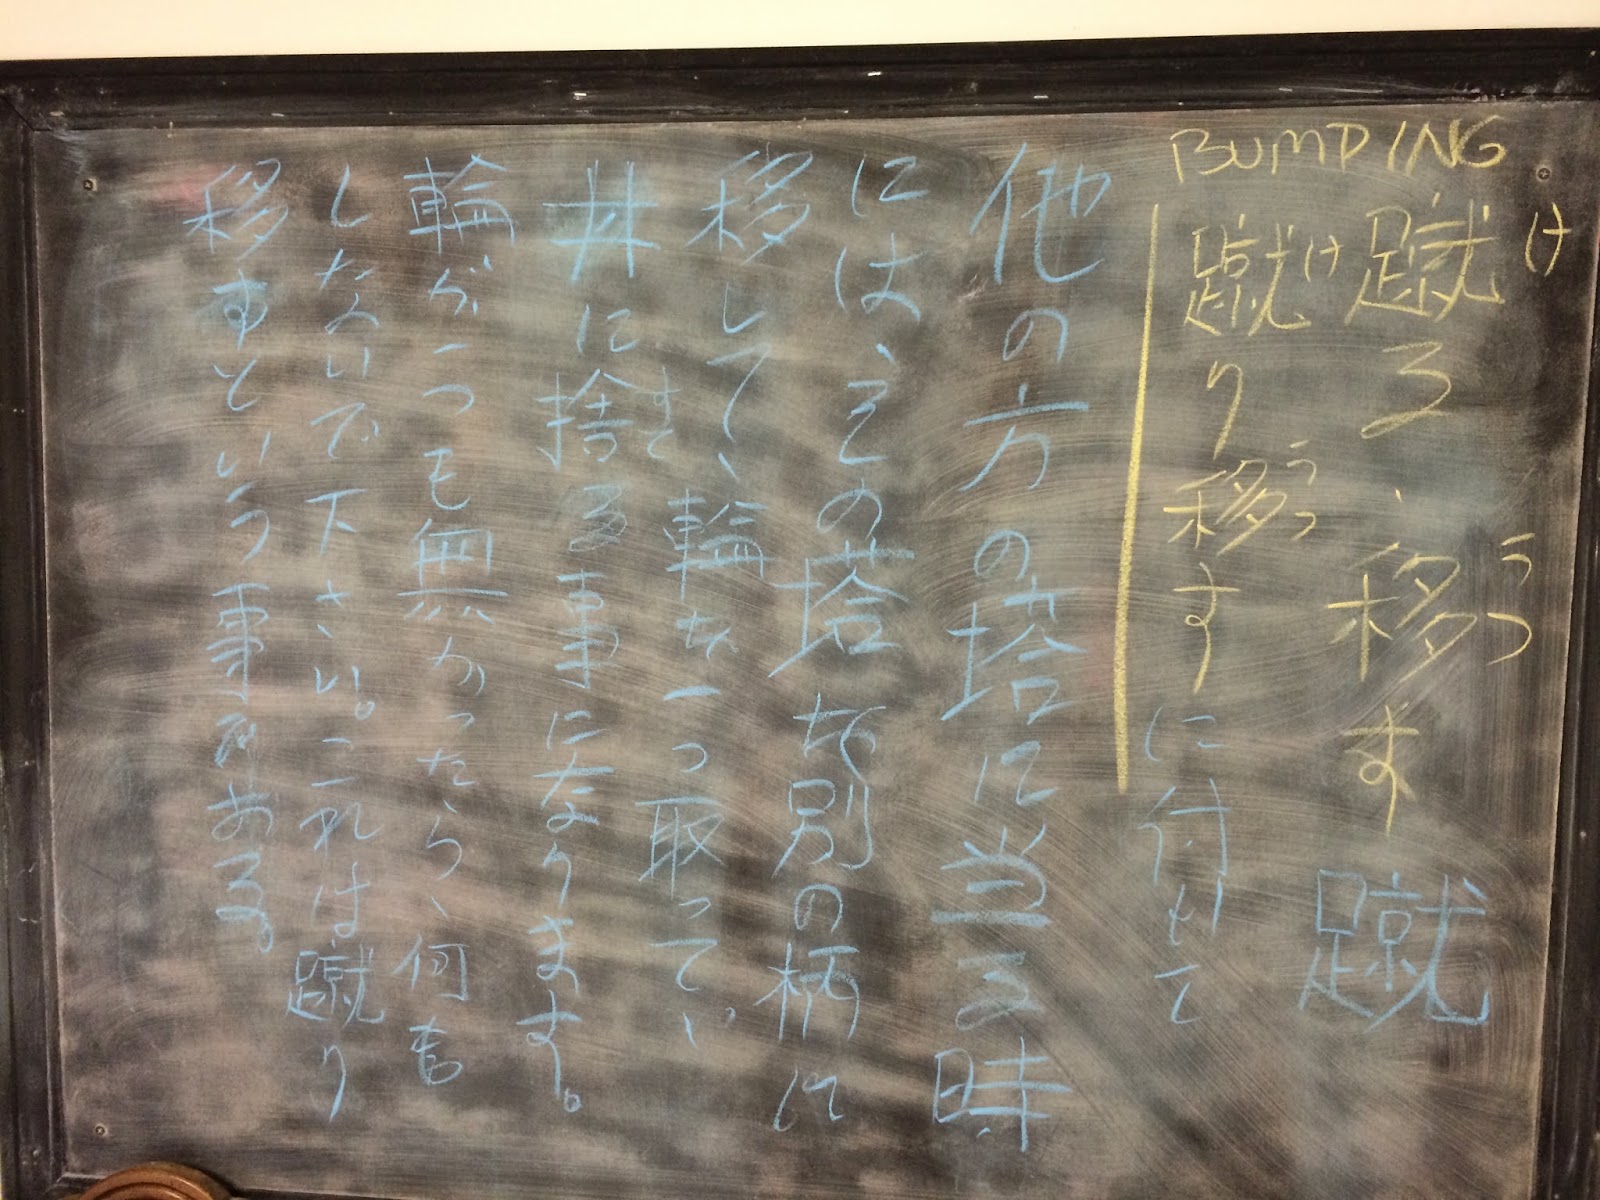 BUMPING
蹴る、移す 蹴
け うつ
蹴り移す に付せて
け うつ
他の方の塔に当る時
には、その塔を別の柄に
移して、輪を一つ取って、
井に捨る事になります。
すて
輪が一つも無かったら、何も
しないで下さい。これは蹴り
移すという事である。